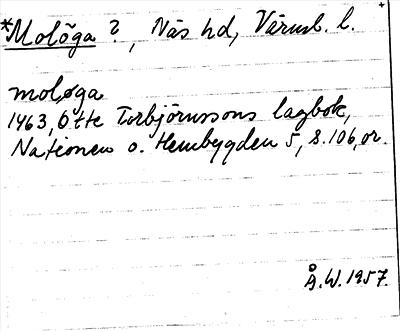 *Molõga ?, Näs hd, Värml. l.
moløga
1463, Otte Torbjörnssons lagbok,
Nationen o. Hembygden 5, s. 106, or.
Å.W. 1957.